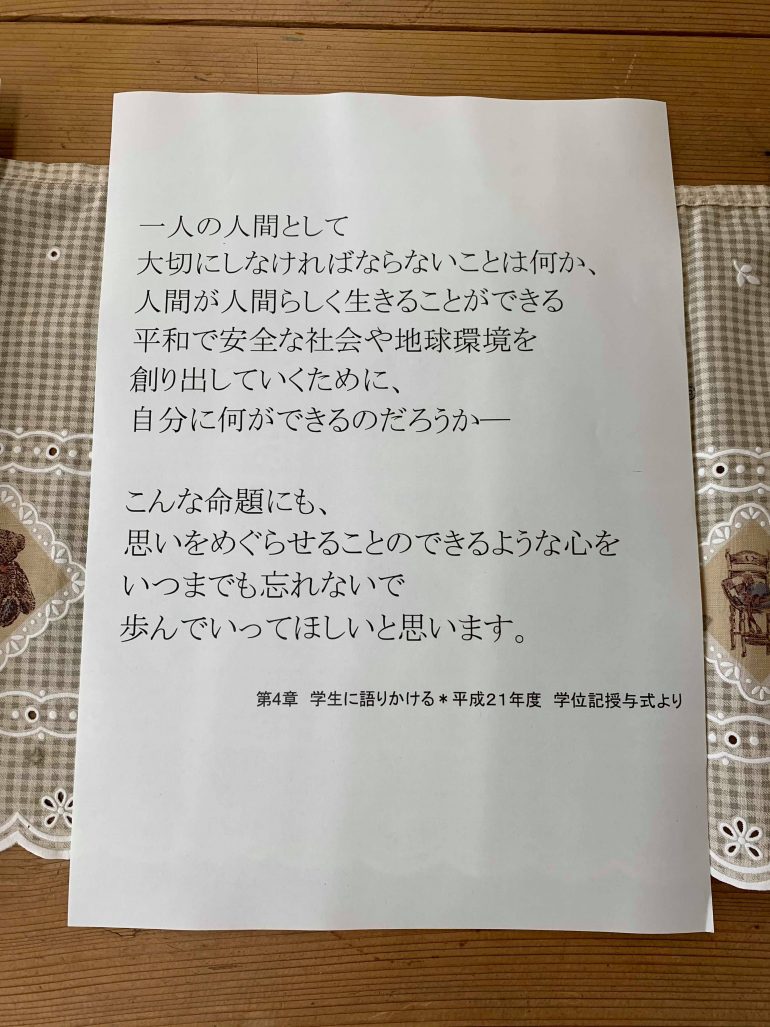 一人の人間として
大切にしなければならないことは何か、
人間が人間らしく生きることができる
平和で安全な社会や地球環境を
創り出していくために、
自分に何ができるのだろうか―
こんな命題にも、
思いをめぐらせることのできるような心を
いつまでも忘れないで
歩んでいってほしいと思います。
第4章 学生に語りかける＊平成21年度 学位記授与式より